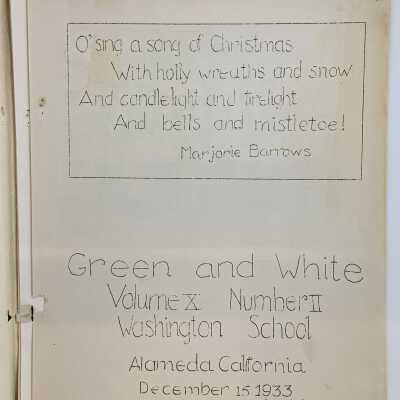 O' sing a song of Christmas
With holly wreaths and snow
And candlelight and firelight
And bells and mistletoe!
Marjorie Barrows
Green and White
Volume X Number II
Washington School
Alameda California
December 15 1933